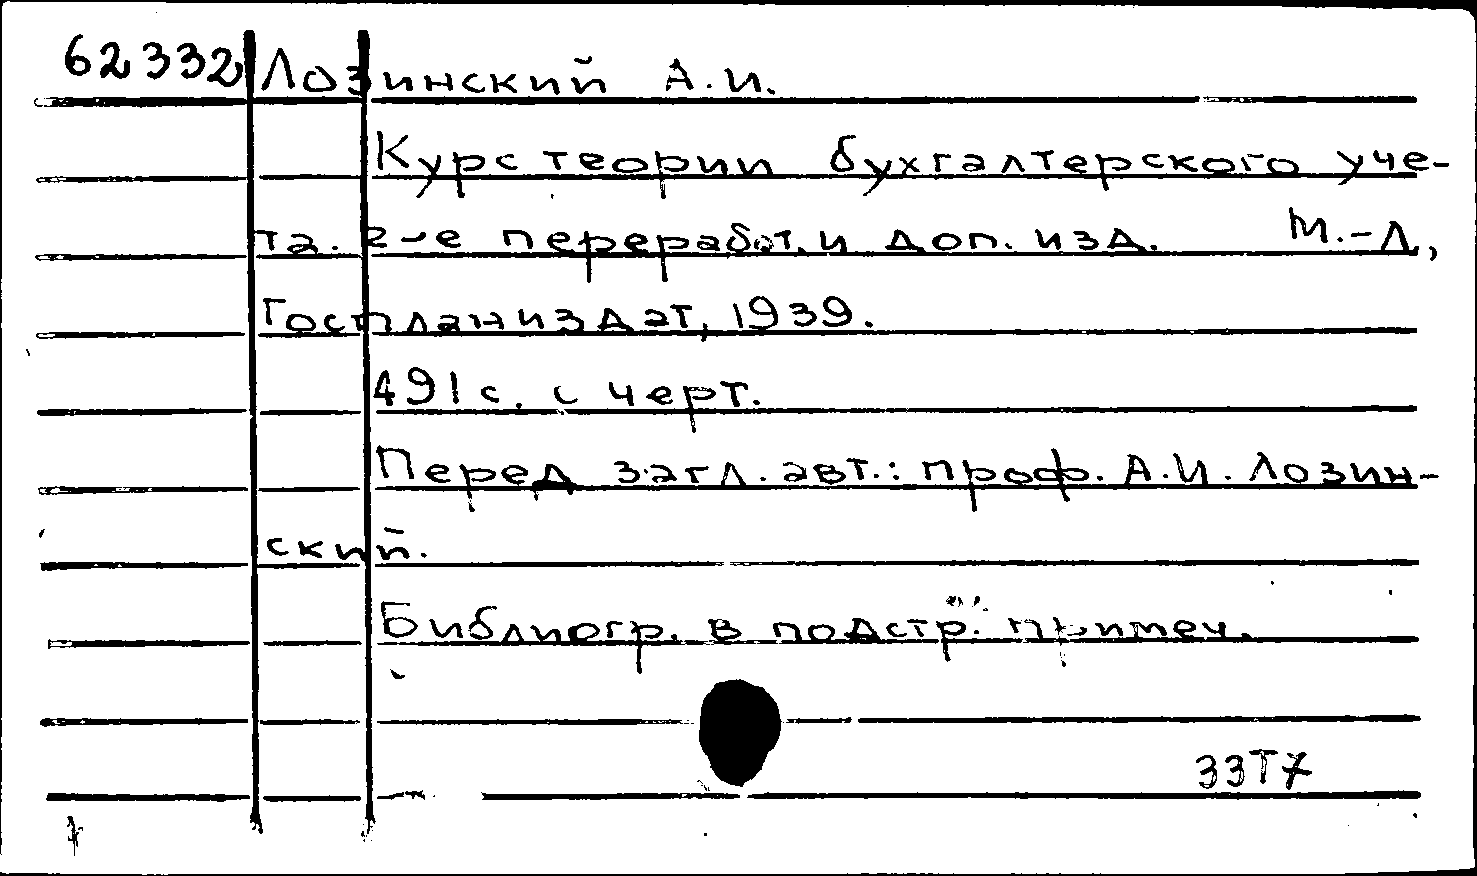 62332 Лозинский А.И.
Курс теории бухгалтерского уче-
та. 2-е переработ. и доп. изд. М.-Л,
Госпланиздат, 1939.
491 с. с черт.
Перед загл. авт.: проф. А.И. Лозин-
ский.
Библиогр. в подстр. примеч.
33Т7